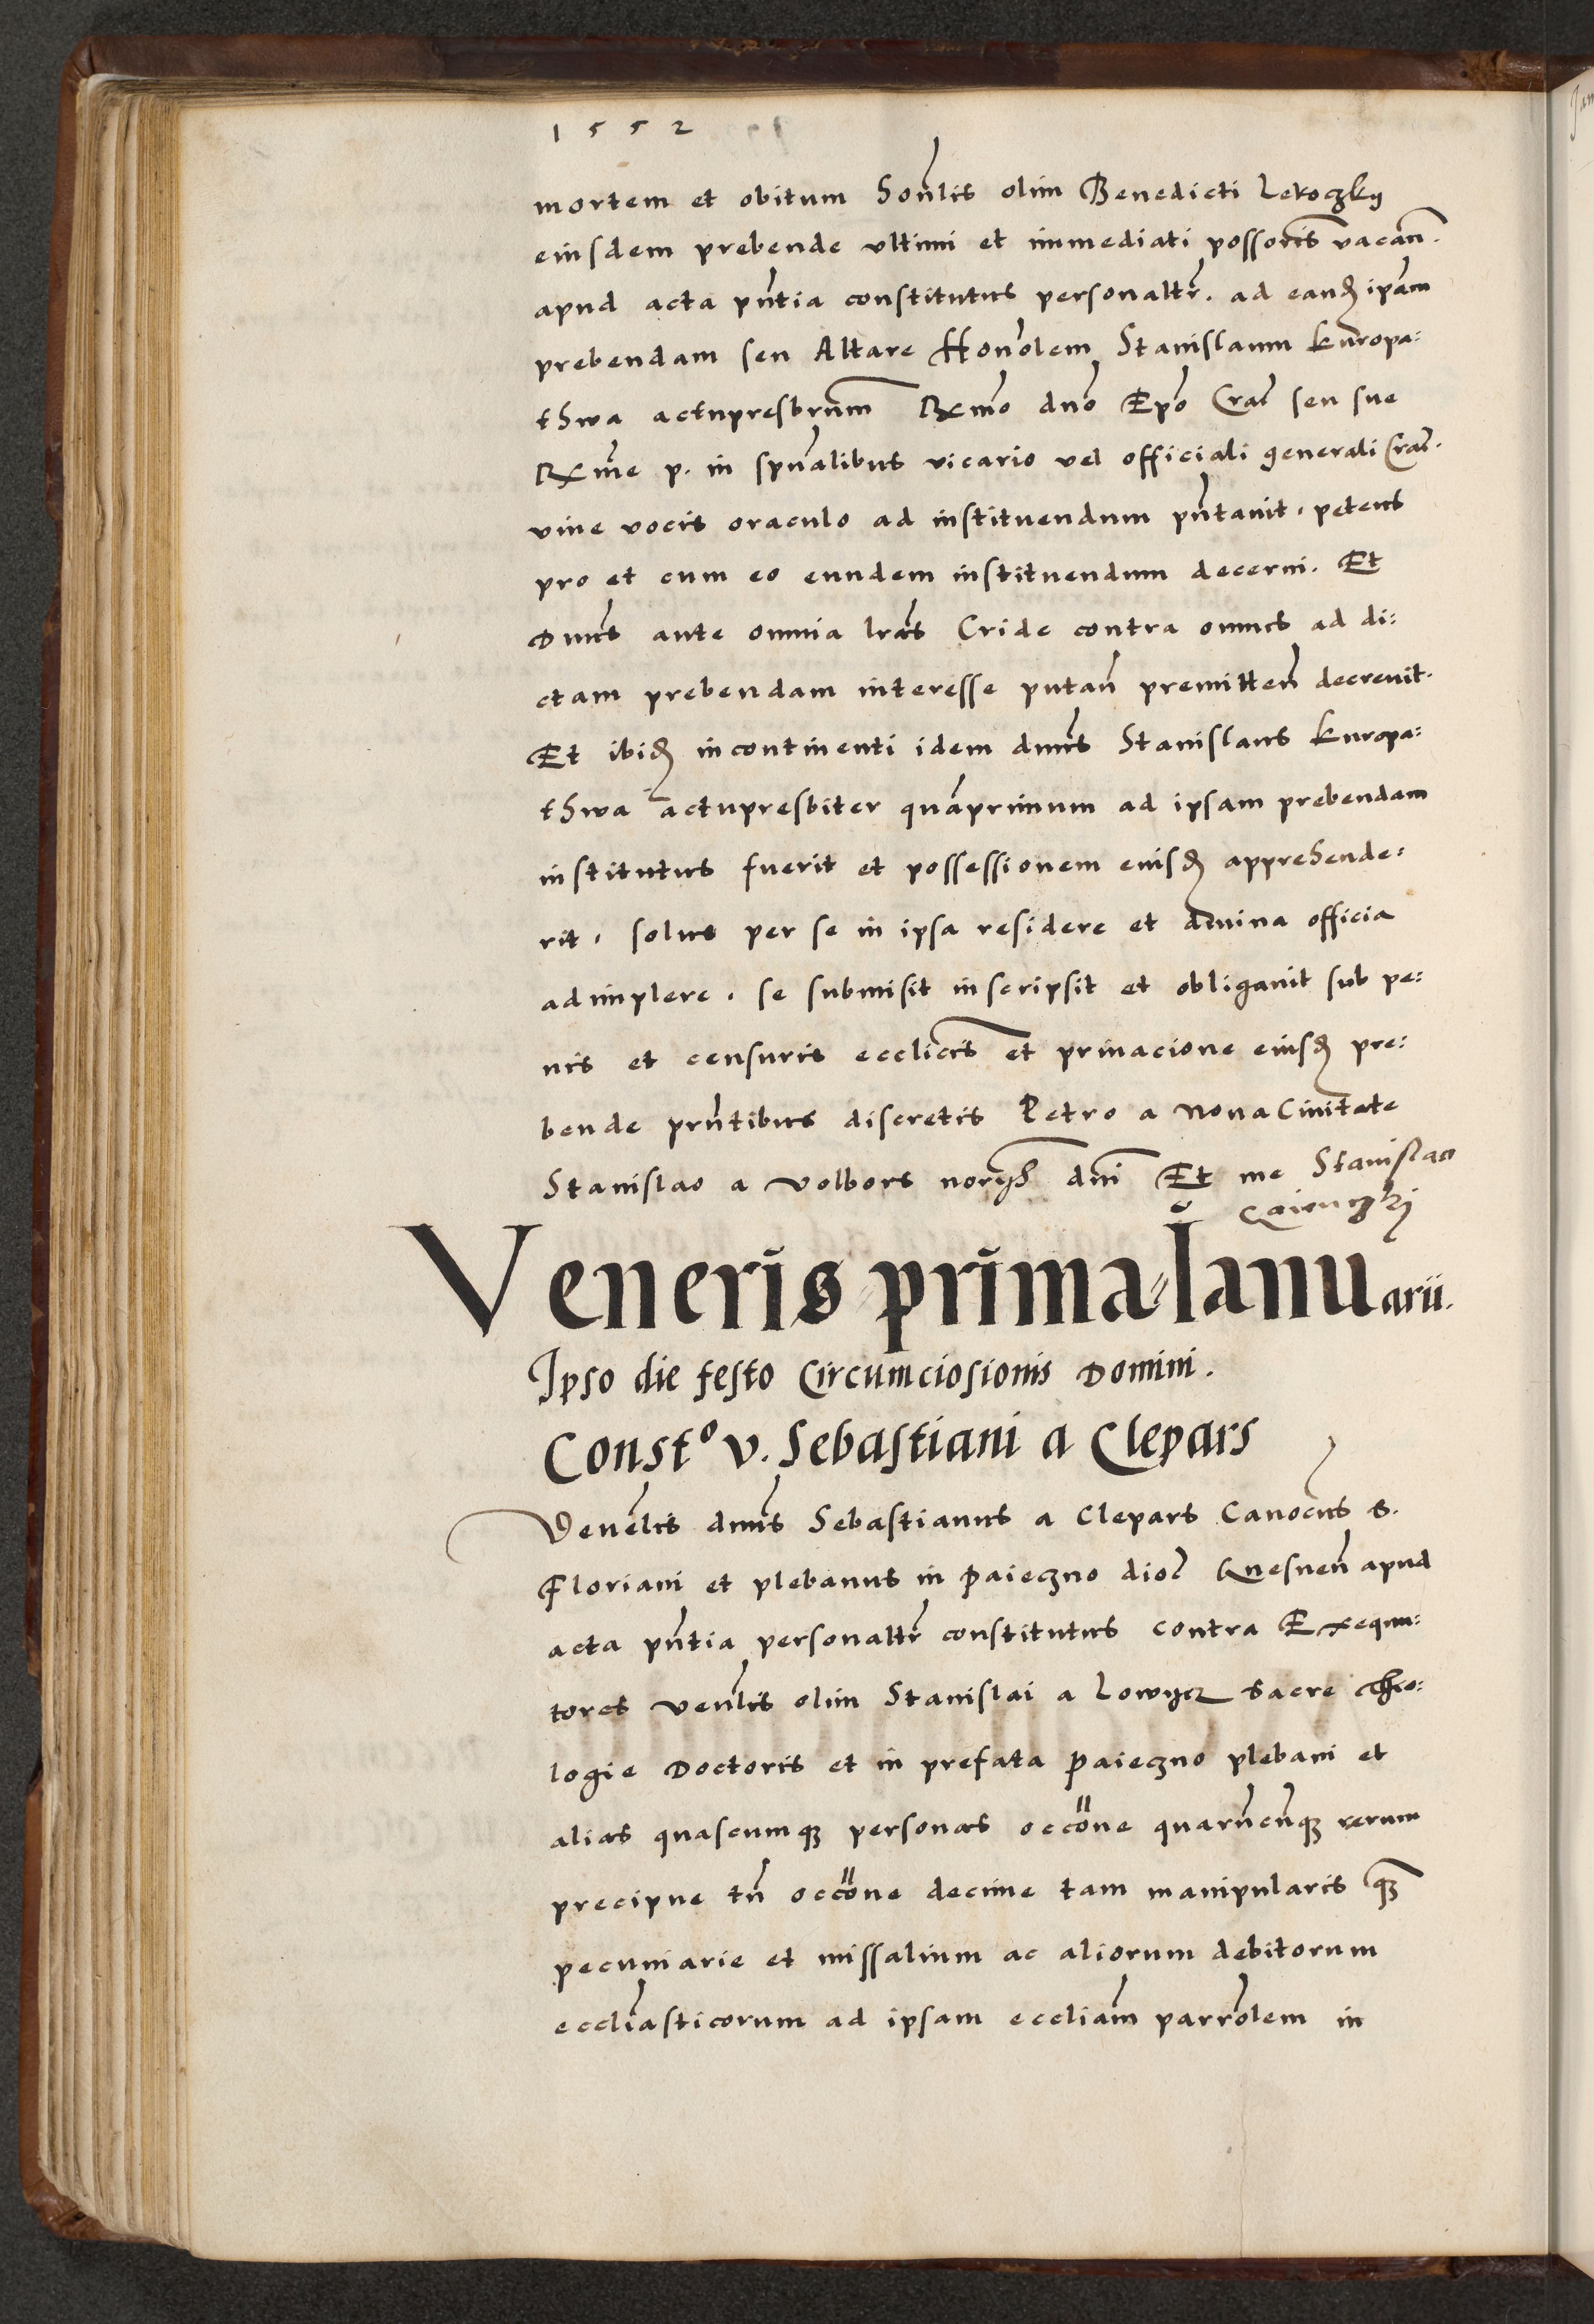 1552
mortem et obitum honãlis olim Benedicti Lekoczky
eiusdem prebende ultimi et immediati possoris vacan̄.
apud acta pn̄tia constitutus personaltr̄. ad eand̄ ipām
prebendam seu Altare Honōlem Stanislaum kuropa:
thwa actupresbrum̄ Rx̄mo dn̄o Ep̄o Crac̄ seu sue
Rx̄me p. in spūalibus vicario vel officiali generali Crac̄.
vive vocis oraculo ad instituendum pn̄tavit, petens
pro et cum eo eundem instituendum decerni. Et
Dn̄us ante omnia lrās Cride contra omnes ad di:
ctam prebendam interesse putan̄ premitten̄ decrevit.
Et ibid̄ incontinenti idem dn̄us Stanislaus kuropa:
thwa actupresbiter quāprimum ad ipsam prebendam
institutus fuerit et possessionem eiusd̄ apprehende:
rit, solus per se in ipsa residere et divina officia
adimplere, se submisit inscripsit et obligavit sub pe:
nis et censuris eccliīcis et privacione eiusd̄ pre:
bende prn̄tibus discretis Petro a Nova Civitate
Stanislao a Volbors dn̄i Et me Stanislao
Veneris prima Ianuarii.
Ipso die festo Circumciosionis Domini.
Constº v. Sebastiani a Clepars
Venēlis dn̄us Sebastianus a Clepars Canōcus S.
Floriani et plebanus in Paieczno dioc̄ Gnesnen̄ apud
acta pn̄tia personaltr̄ constitutus contra Exequu:
tores venlīs olim Stanislai a Lowycz sacre theo:
logie Doctoris et in prefata Paieczno plebani et
alias quascumqꝫ personas occōne quarūcūqꝫ rerum
precipue tn̄ occōne decime tam manipularis qꝫ̄
pecuniarie et missalium ac aliorum debitorum
ecclīasticorum ad ipsam eccliām parrōlem in